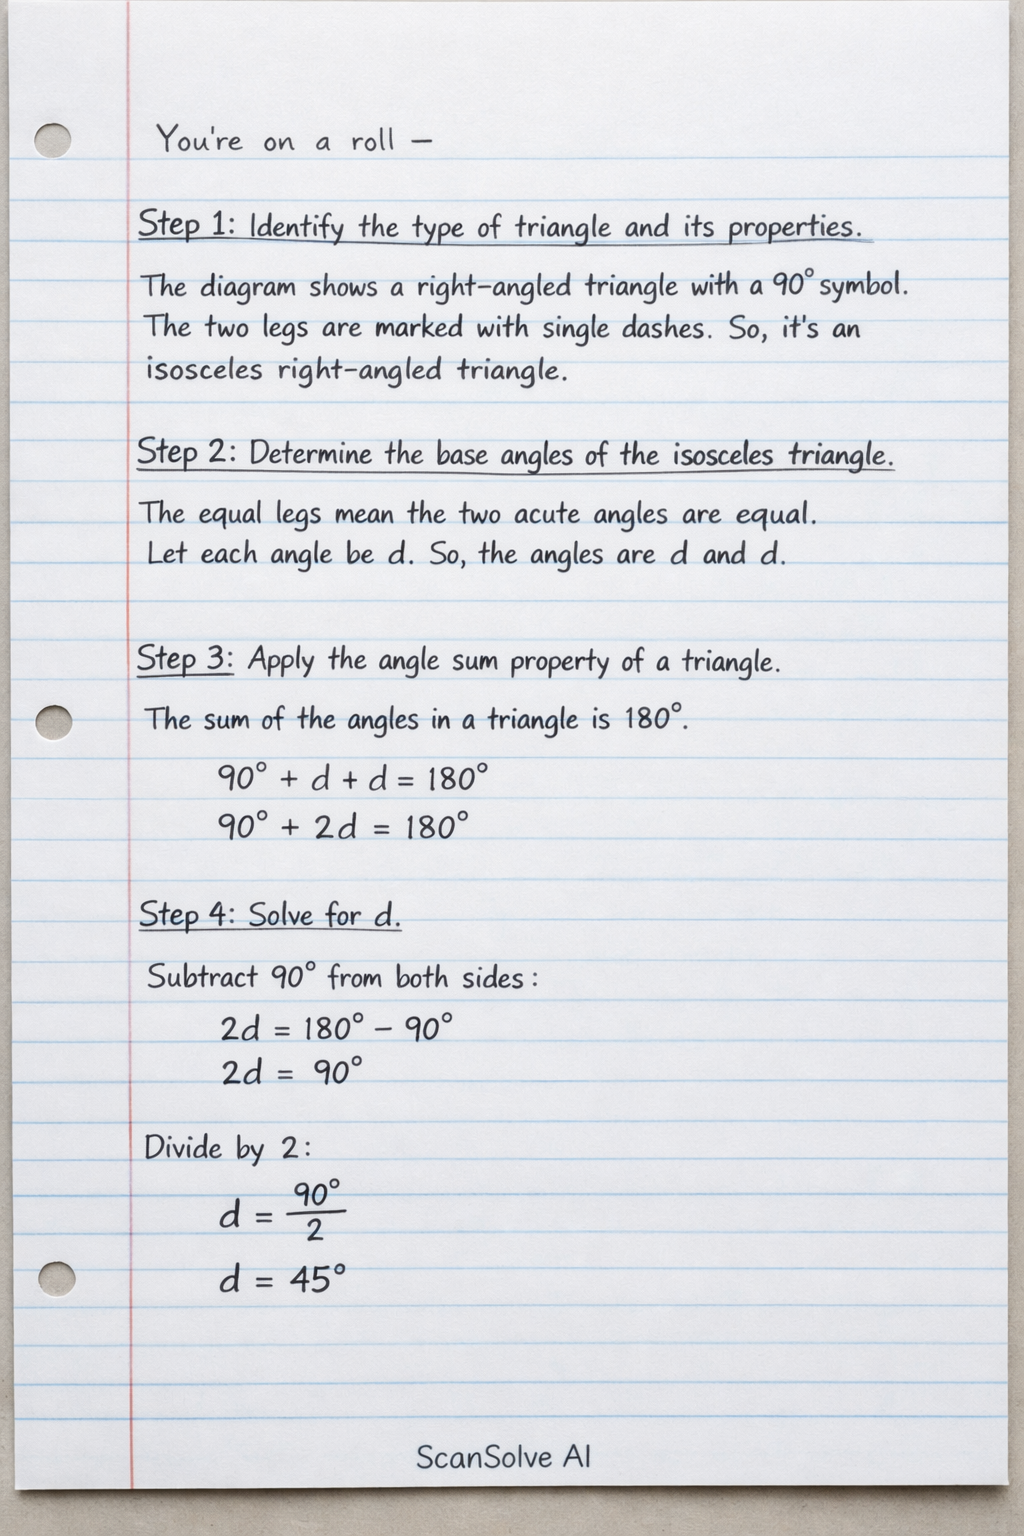 You're on a roll —
Step 1: Identify the type of triangle and its properties.
The diagram shows a right-angled triangle with a 90° symbol.
The two legs are marked with single dashes. So, it's an
isosceles right-angled triangle.
Step 2: Determine the base angles of the isosceles triangle.
The equal legs mean the two acute angles are equal.
Let each angle be d. So, the angles are d and d.
Step 3: Apply the angle sum property of a triangle.
The sum of the angles in a triangle is 180°.
90° + d + d = 180°
90° + 2d = 180°
Step 4: Solve for d.
Subtract 90° from both sides:
2d = 180° − 90°
2d = 90°
Divide by 2:
d = 90°/2
d = 45°
ScanSolve AI